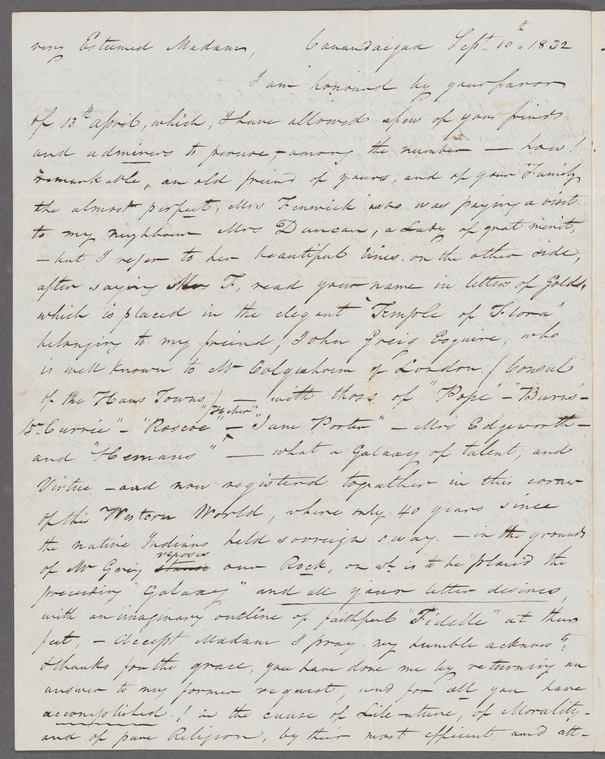 very Esteemed Madam, Canandaigua Sept. 10th 1832
I am honored by your favor
of 13th April, which, I have allowed a few of your friends
and admirers to peruse, among the number — how!
remarkable, an old friend of yours, and of your Family
the almost perfect, Mrs Fenwick who was paying a visit
to my neighbour Mrs Duncan, a Lady of great merit,
– but I refer to her beautiful lines on the other side,
after saying Mrs F, read your name in letters of Gold,
which is placed in the elegant "Temple of Flora"
belonging to my friend, John Greig Esquire, who
is well known to Mr Colquhoun of London (Consul
of the Hans Towns) — with those of "Pope" – "Burns" –
Dr Currie" – "Roscoe" – "Jane Porter" – Mrs Edgeworth –
and "Hemans" — what a Galaxy of talent, and
Virtue – and now registered together in this corner
of this Western World, where only 40 years since
the native Indians held sovereign sway. – in the grounds
of Mr Greig reposes our Rock, on wh. is to be placed the
preceeding Galaxy" and all your letter desires,
with an imaginary outline of faithful "Fidelle" at their
feet, – Accept Madam I pray my humble acknowts,
& thanks for the grace, you have done me by returning an
answer to my former request, and for all you have
accomplished! in the cause of Literature, of Morality
and of pure Religion, by their most efficient and att-